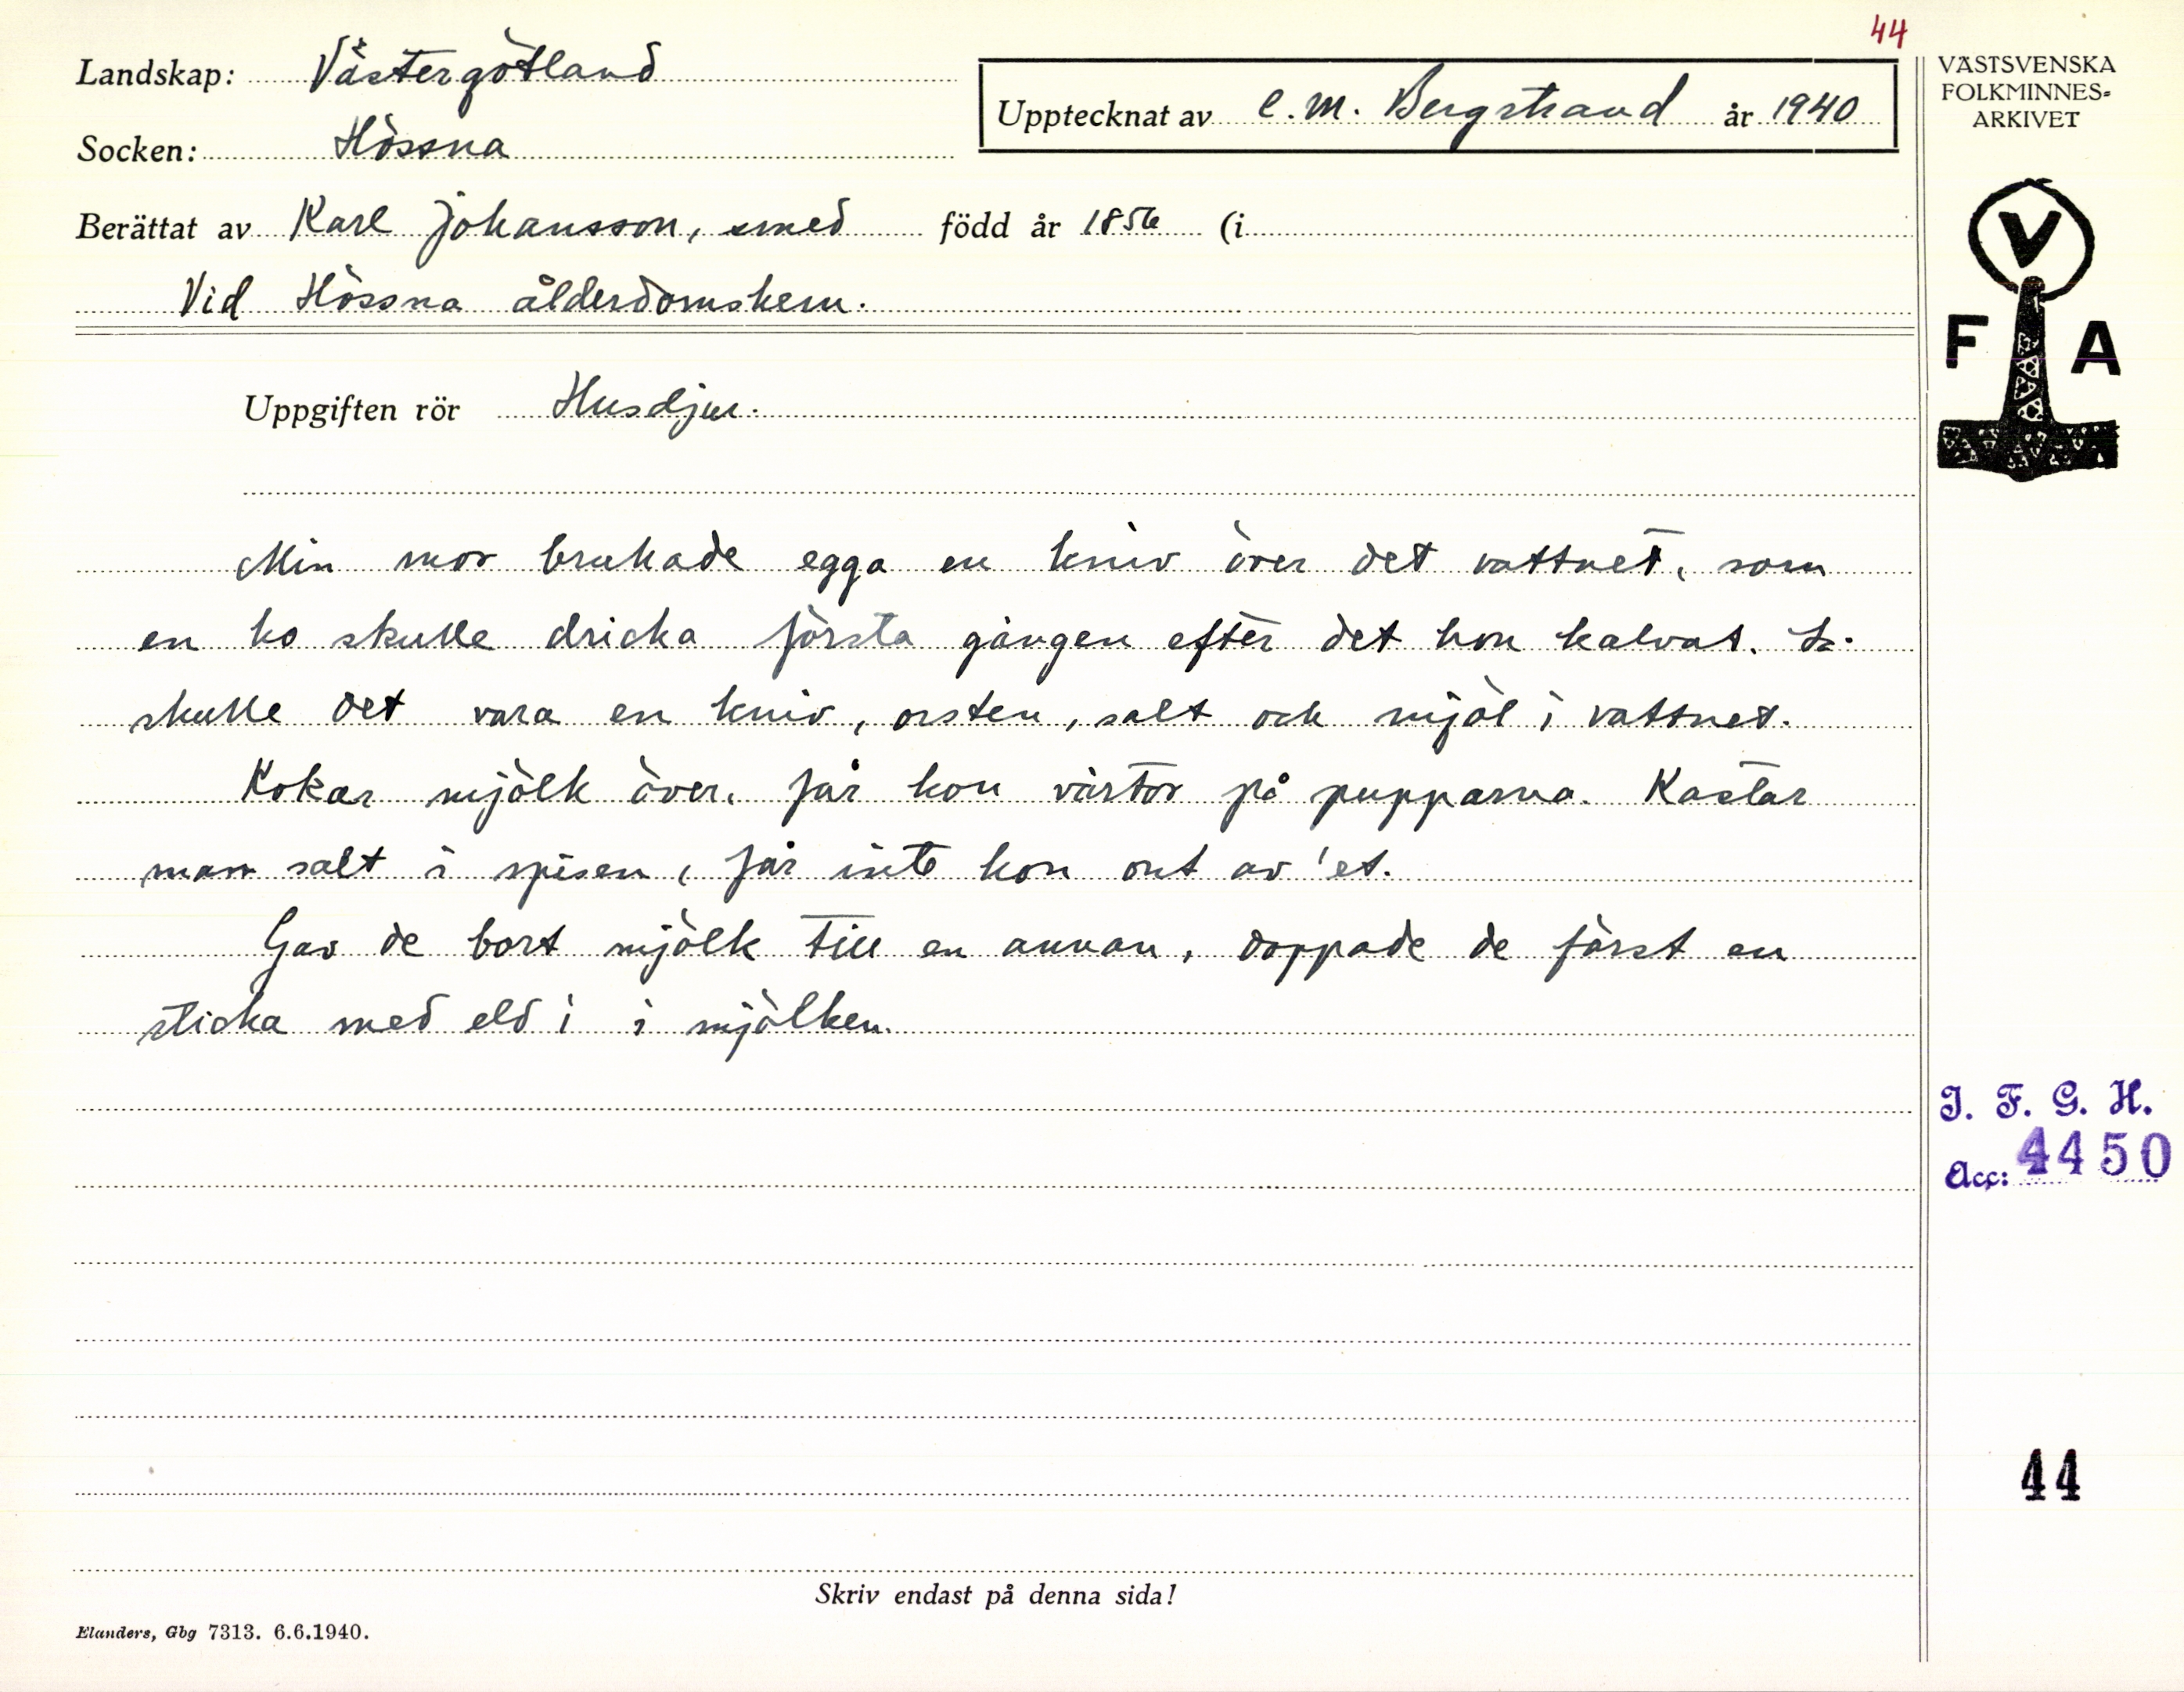 44
Landskap: Västergötland
Upptecknat av C. M. Bergstrand år 1940
VÄSTSVENSKA
FOLKMINNES-
ARKIVET
Socken: Hössna
Berättat av Karl Johansson, smed född år 1856 (i
Vid Hössna ålderdomshem.
V
F A
Uppgiften rör Husdjur.
Min mor brukade egga en kniv över det vattnet, som
en ko skulle dricka första gången efter det hon kalvat.
skulle det vara en kniv, orsten, salt och mjöl i vattnet.
Kokar mjölk över, får kon vårtor på pupparna. Kastar
man salt i spisen, får inte kon ont av 'et.
Gav de bort mjölk till en annan, doppade de först en
sticka med eld i i mjölken.
I. F. G. H.
Acc: 4450
44
Skriv endast på denna sida!
Elanders, Gbg 7313. 6.6.1940.